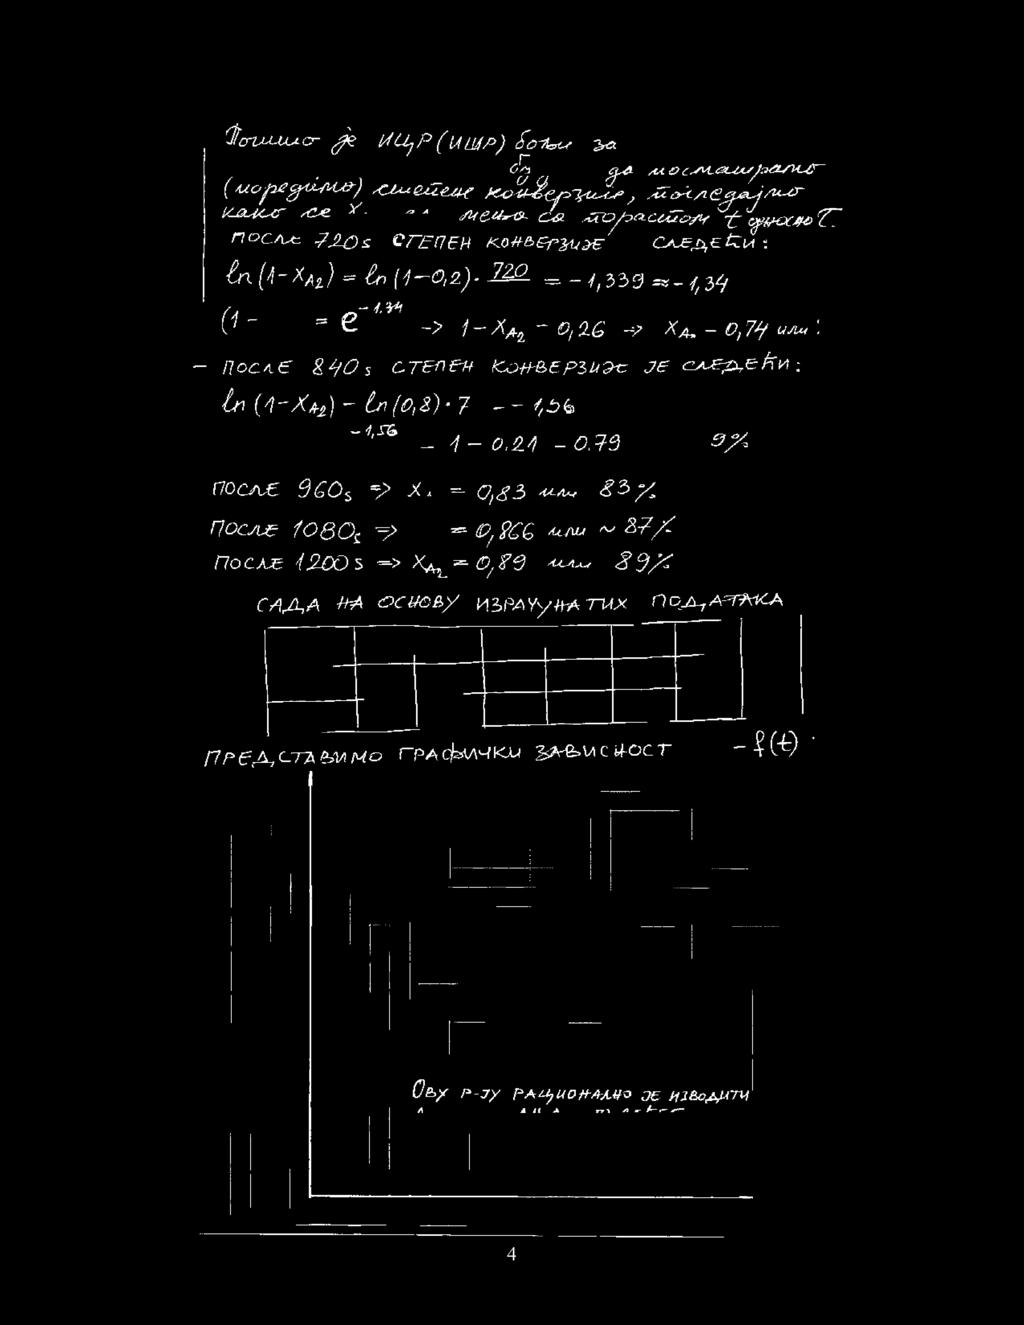 Пошшо је ИЦР (ИШР) бољи за
да посматрамо
(поредимо) степене конверзије, погледајмо
како се X са порастом t односно τ.
ПОСЛЕ 720s СТЕПЕН КОНВЕРЗИЈЕ СЛЕДЕЋИ:
ln (1-X_A2) = ln (1-0,2) · 720 = -1,339 ≈ -1,34
(1- = e^-1.34 -> 1-X_A2 - 0,26 -> X_A - 0,74 или
- ПОСЛЕ 840s СТЕПЕН КОНВЕРЗИЈЕ ЈЕ СЛЕДЕЋИ:
ln (1-X_A2) - ln (0,8) · 7 - - 1,56
-1,56 - 1 - 0.21 - 0.79 9%
ПОСЛЕ 960s => X = 0,83 или 83%
ПОСЛЕ 1080s => = 0,866 или ~ 87%
ПОСЛЕ 1200s => X_A2 = 0,89 или 89%
САДА НА ОСНОВУ ИЗРАЧУНАТИХ ПОДАТАКА
ПРЕДСТАВИМО ГРАФИЧКИ ЗАВИСНОСТ - f(t)
ОВУ Р-ЈУ РАЦИОНАЛНО ЈЕ ИЗВОДИТИ
4